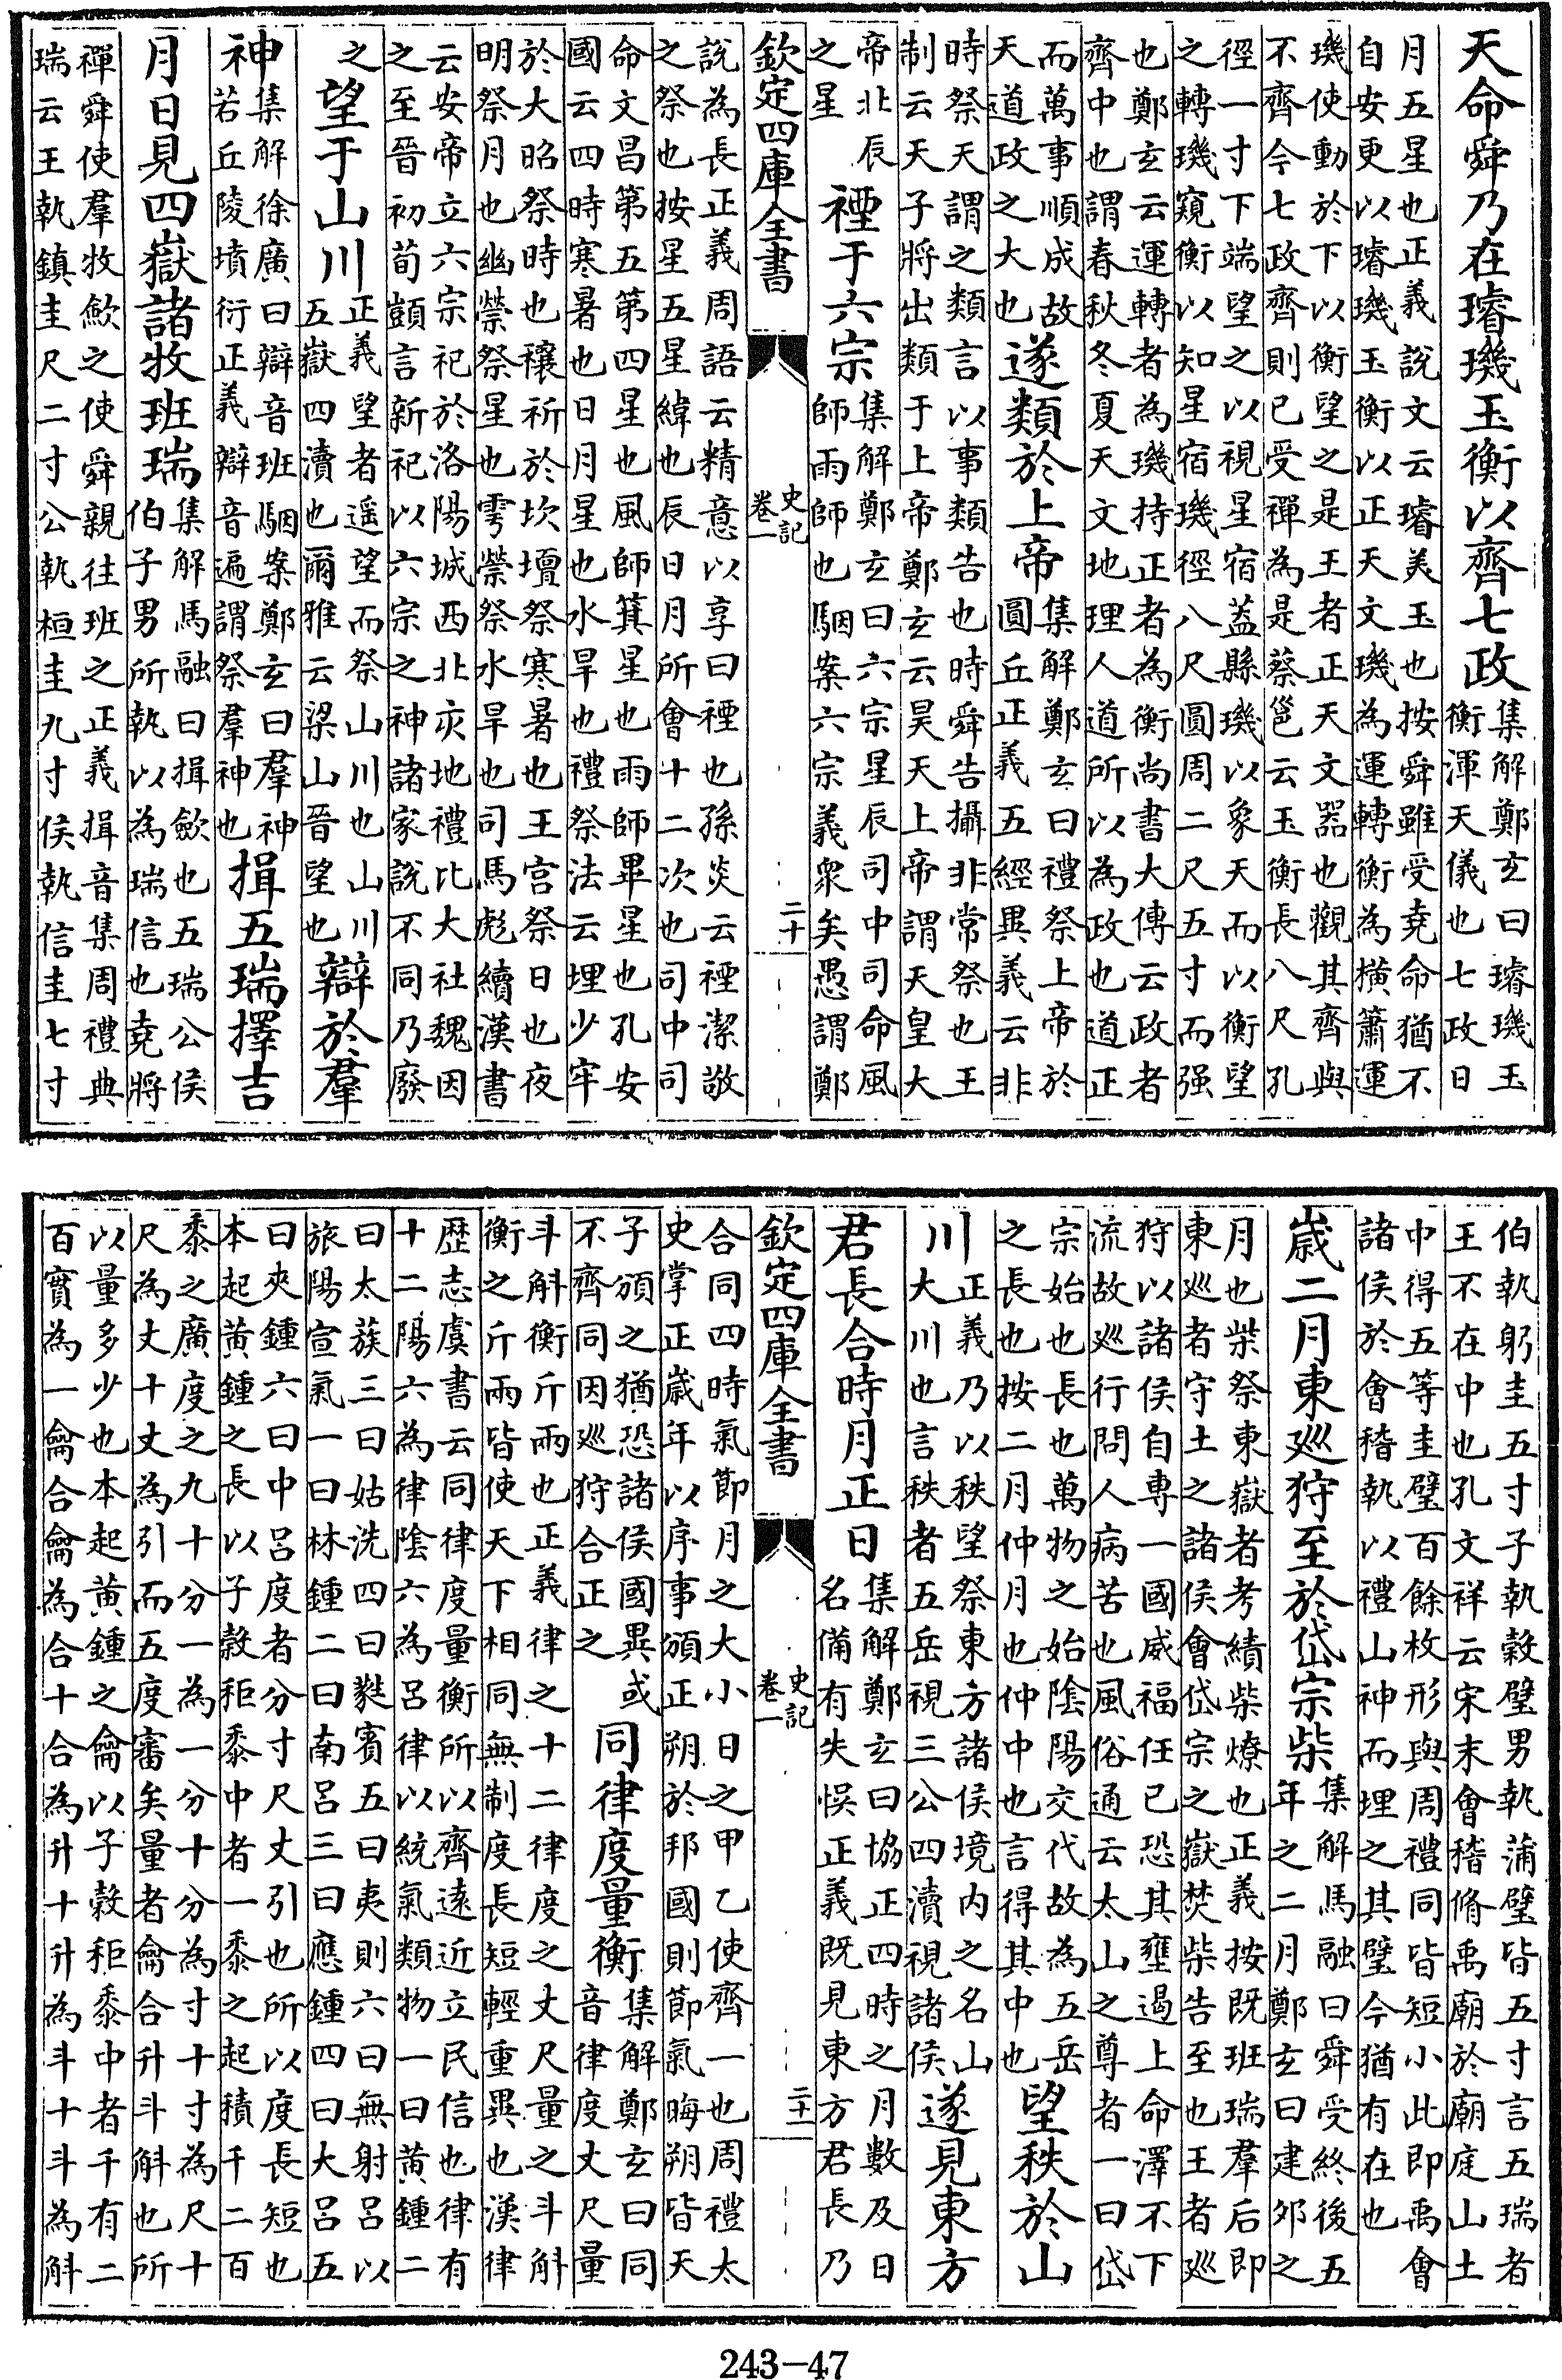 天命舜乃在璿璣玉衡以齊七政
集解鄭玄曰璿璣玉
衡渾天儀也七政日
月五星也正義說文云璿美玉也按舜雖受堯命猶不
自安更以璿璣玉衡以正天文璣為運轉衡為橫簫運
璣使動於下以衡望之是王者正天文器也觀其齊與
不齊今七政齊則已受禪為是蔡邕云玉衡長八尺孔
徑一寸下端望之以視星宿葢縣璣以象天而以衡望
之轉璣窺衡以知星宿璣徑八尺圓周二尺五寸而强
也鄭玄云運轉者為璣持正者為衡尚書大傳云政者
齊中也謂春秋冬夏天文地理人道所以為政也道正
而萬事順成故
天道政之大也
遂類於上帝
集解鄭玄曰禮祭上帝於
圓丘正義五經異義云非
時祭天謂之類言以事類告也時舜告攝非常祭也王
制云天子將出類于上帝鄭玄云昊天上帝謂天皇大
帝北辰
之星
禋于六宗
集解鄭玄曰六宗星辰司中司命風
師雨師也駰案六宗義衆矣愚謂鄭
欽定四庫全書
史記
卷一
二十
說為長正義周語云精意以享曰禋也孫炎云禋潔敬
之祭也按星五星緯也辰日月所會十二次也司中司
命文昌第五第四星也風師箕星也雨師畢星也孔安
國云四時寒暑也日月星也水旱也禮祭法云埋少牢
於大昭祭時也禳祈於坎壇祭寒暑也王宫祭日也夜
明祭月也幽禜祭星也雩禜祭水旱也司馬彪續漢書
云安帝立六宗祀於洛陽城西北亥地禮比大社魏因
之至晉初荀顗言新祀以六宗之神諸家說不同乃廢
之
望于山川
正義望者遥望而祭山川也山川
五嶽四瀆也爾雅云梁山晉望也
辯於羣
神
集解徐廣曰辯音班駰案鄭玄曰羣神
若丘陵墳衍正義辯音遍謂祭羣神也
揖五瑞擇吉
月日見四嶽諸牧班瑞
集解馬融曰揖歛也五瑞公侯
伯子男所執以為瑞信也堯將
禪舜使羣牧歛之使舜親往班之正義揖音集周禮典
瑞云王執鎮圭尺二寸公執桓圭九寸侯執信圭七寸
伯執躬圭五寸子執榖璧男執蒲璧皆五寸言五瑞者
王不在中也孔文祥云宋末會稽脩禹廟於廟庭山土
中得五等圭璧百餘枚形與周禮同皆短小此即禹會
諸侯於會稽執以禮山神而埋之其璧今猶有在也
嵗二月東巡狩至於岱宗柴
集解馬融曰舜受終後五
年之二月鄭玄曰建夘之
月也柴祭東嶽者考績柴燎也正義按既班瑞羣后即
東巡者守土之諸侯會岱宗之嶽焚柴告至也王者巡
狩以諸侯自專一國威福任已恐其壅遏上命澤不下
流故巡行問人病苦也風俗通云太山之尊者一曰岱
宗始也長也萬物之始陰陽交代故為五岳
之長也按二月仲月也仲中也言得其中也
望秩於山
川
正義乃以秩望祭東方諸侯境内之名山
大川也言秩者五岳視三公四瀆視諸侯
遂見東方
君長合時月正日
集解鄭玄曰協正四時之月數及日
名備有失悞正義既見東方君長乃
欽定四庫全書
史記
卷一
二十一
合同四時氣節月之大小日之甲乙使齊一也周禮太
史掌正嵗年以序事頒正朔於邦國則節氣晦朔皆天
子頒之猶恐諸侯國異或
不齊同因巡狩合正之
同律度量衡
集解鄭玄曰同
音律度丈尺量
斗斛衡斤兩也正義律之十二律度之丈尺量之斗斛
衡之斤兩皆使天下相同無制度長短輕重異也漢律
歴志虞書云同律度量衡所以齊遠近立民信也律有
十二陽六為律陰六為呂律以統氣類物一曰黄鍾二
曰太蔟三曰姑洗四曰蕤賓五曰夷則六曰無射呂以
旅陽宣氣一曰林鍾二曰南呂三曰應鍾四曰大呂五
曰夾鍾六曰中呂度者分寸尺丈引也所以度長短也
本起黄鍾之長以子榖秬黍中者一黍之起積千二百
黍之廣度之九十分一為一分十分為寸十寸為尺十
尺為丈十丈為引而五度審矣量者龠合升斗斛也所
以量多少也本起黄鍾之龠以子榖秬黍中者千有二
百實為一龠合龠為合十合為升十升為斗十斗為斛
243-47